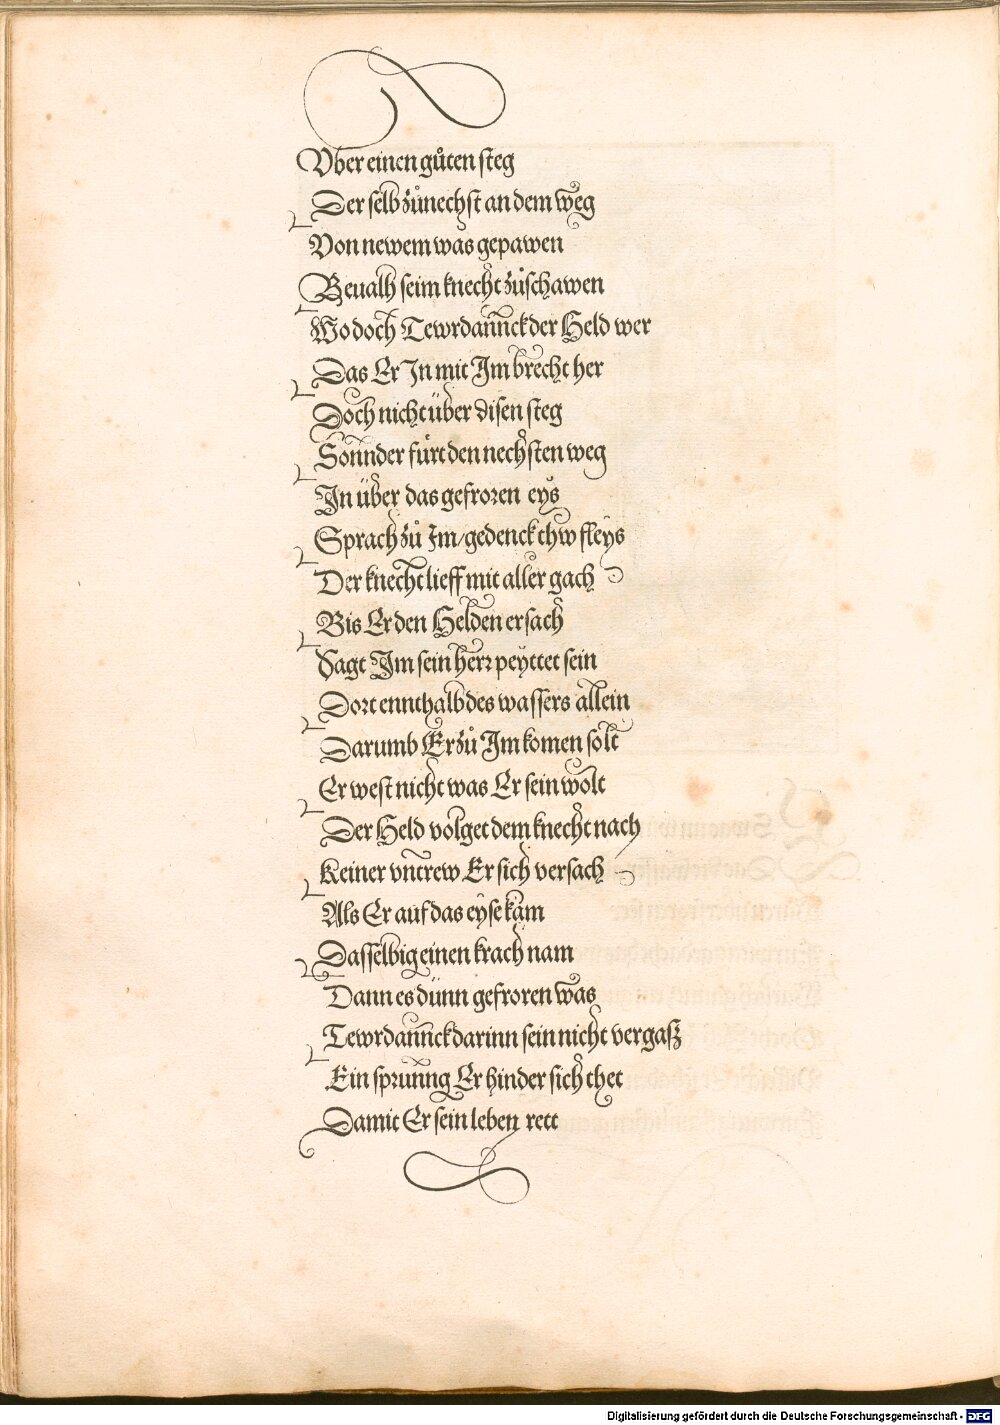 Vber einen gůten steg
Der selb zůnechst an dem weg
Von newem was gepawen
Beualh seim knecht zůschawen
Wo doch Tewrdannck der Held wer
Das Er In mit Im brecht her
Doch nicht über disen steg
Sonnder fürt den nechsten weg
In über das gefroren eys
Sprach zů Im / gedenck thw fleys
Der knecht lieff mit aller gach
Bis Er den Helden ersach
Sagt Im sein herr peyttet sein
Dort ennthalb des wassers allein
Darumb Er zů Im komen solt
Er west nicht was Er sein wolt
Der Held volget dem knecht nach
Keiner vntrew Er sich versach
Als Er auf das eyse kam
Dasselbig einen krach nam
Dann es dünn gefroren was
Tewrdannck darinn sein nicht vergaß
Ein sprunng Er hinder sich thet
Damit Er sein leben rett
Digitalisierung gefördert durch die Deutsche Forschungsgemeinschaft - DFG